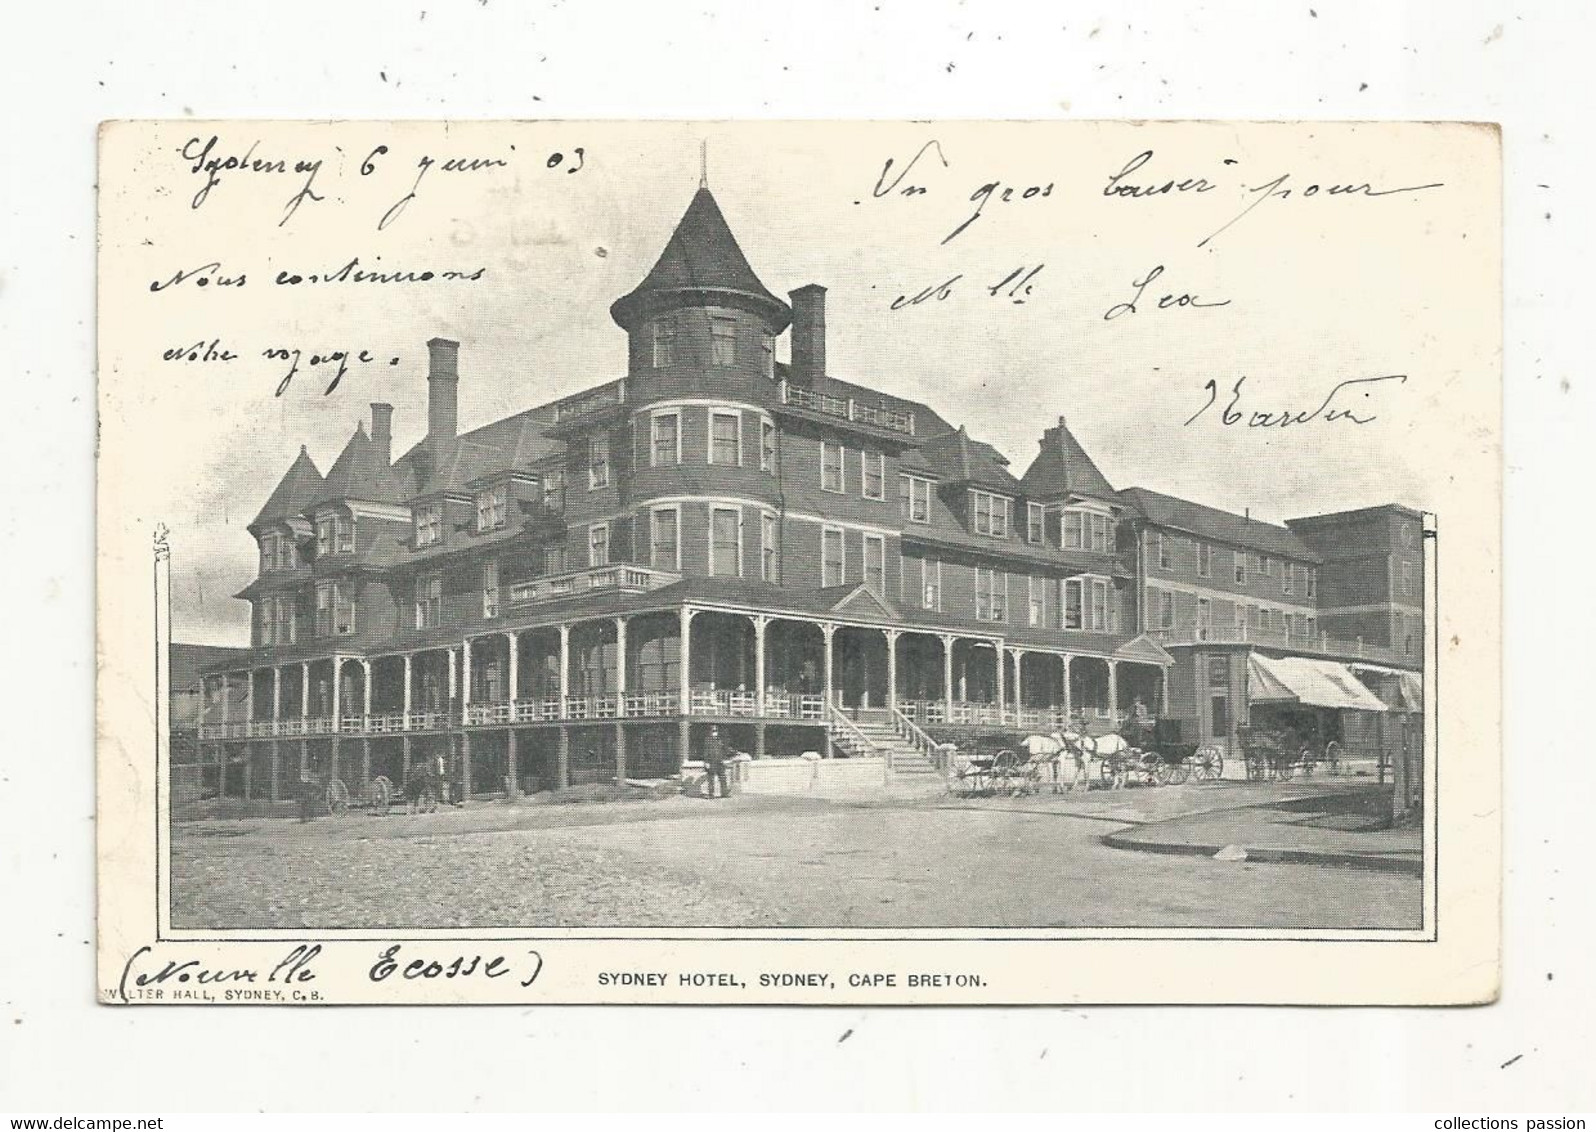 Sydeney 6 juin 03
Nous continuons
notre voyage.
Un gros baiser pour
Mlle Lea
Martin
(Nouvelle Ecosse)
SYDNEY HOTEL, SYDNEY, CAPE BRETON.
WALTER HALL, SYDNEY, C.B.
collections passion